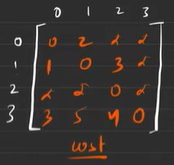 0 1 2 3
0 0 2 α α
1 1 0 3 α
2 α α 0 α
3 3 5 4 0
cost